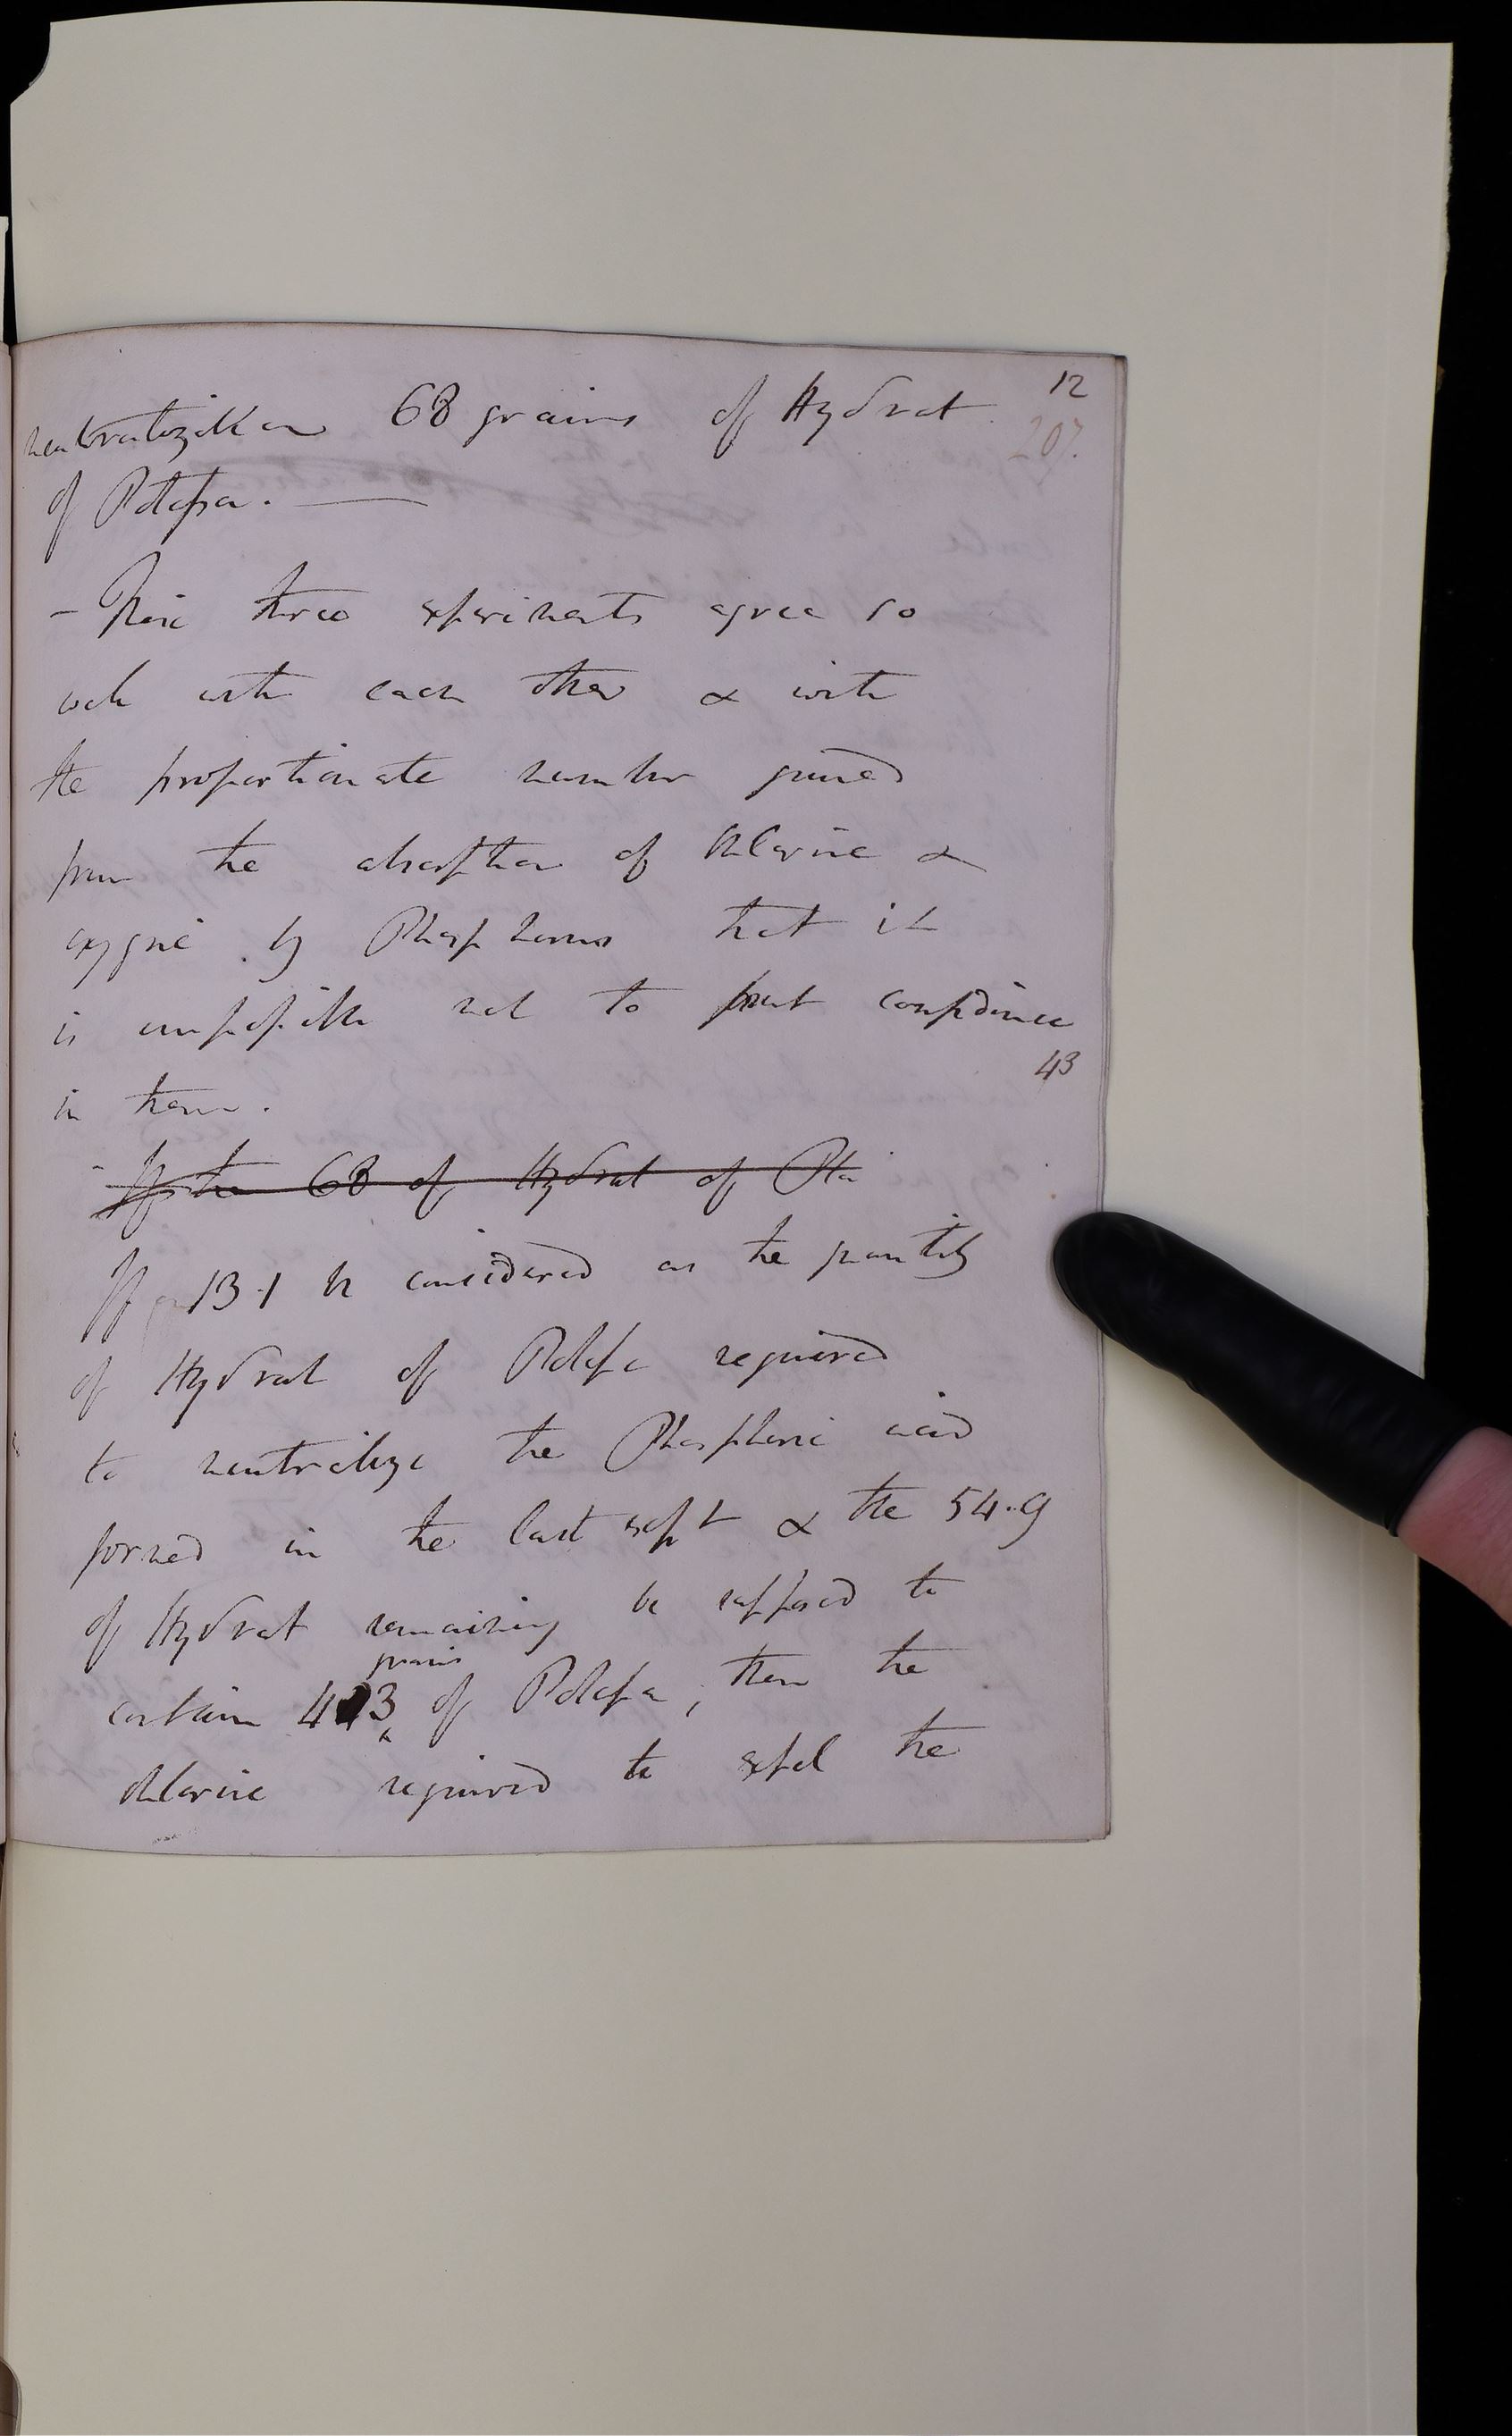 12
neutralization 68 grains of Hydrat
207.
of Potassa. —
- These three experiments agree so
well with each other & with
the proportionate number gained
from the absorption of Chlorine &
oxygene by Phosphorus that it
is impossible not to put confidence
43
in them.
- If the 68 of Hydrat of Pta
If 13.1 be considered as the quantity
of Hydrat of Potassa required
to neutralize the Phosphoric acid
formed in the last expt & the 54.9
of Hydrat remaining be supposed to
grains
contain 43 of Potassa, then the
Chlorine required to expel the